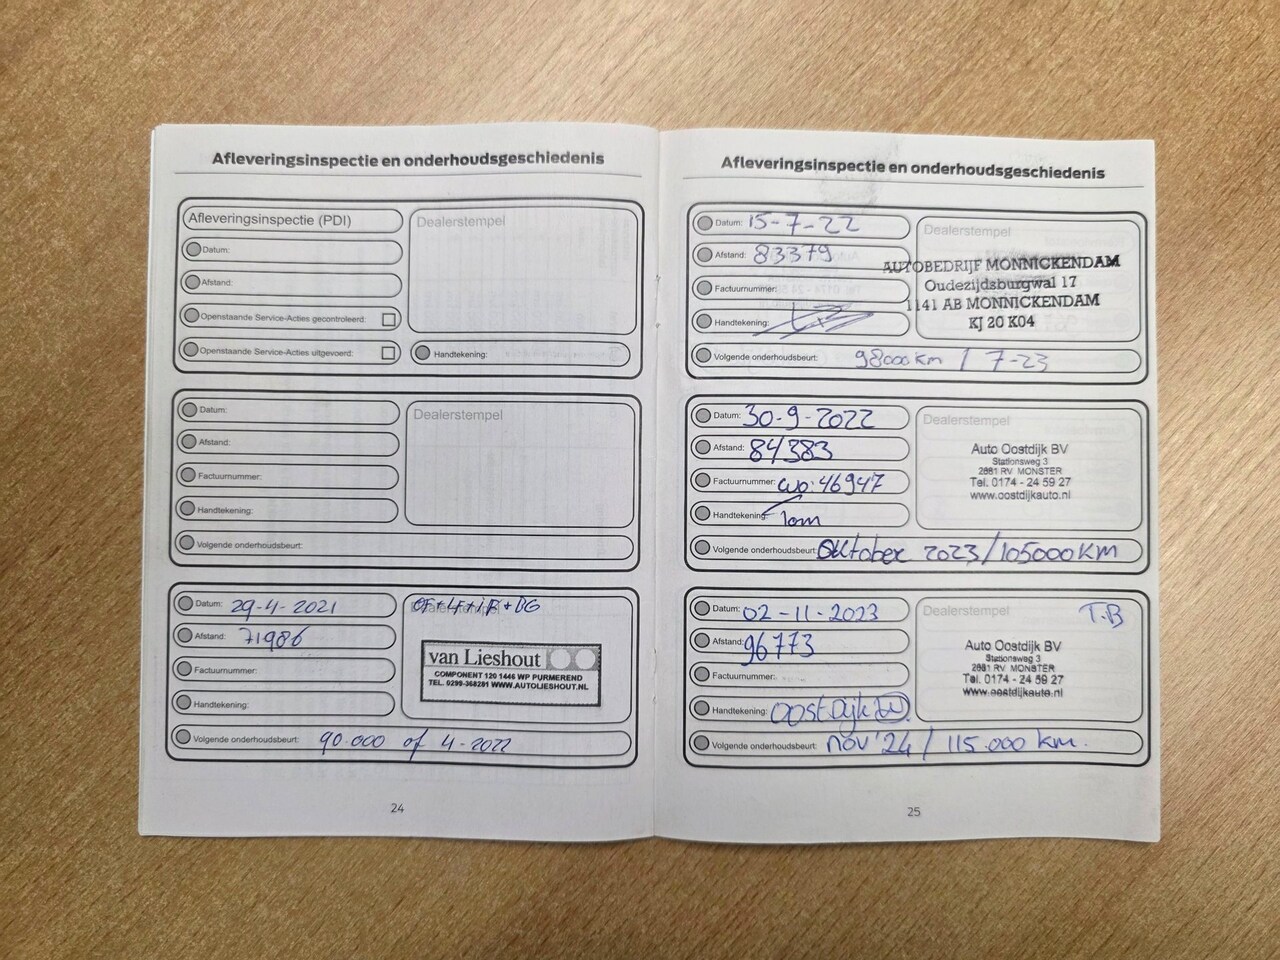 Afleveringsinspectie en onderhoudsgeschiedenis
Afleveringsinspectie (PDI)
Datum:
Afstand:
Openstaande Service-Acties gecontroleerd:
Openstaande Service-Acties uitgevoerd:
Dealerstempel
Handtekening:
Datum:
Afstand:
Factuurnummer:
Handtekening:
Volgende onderhoudsbeurt:
Dealerstempel
Datum: 29-4-2021
Afstand: 71986
Factuurnummer:
Handtekening:
Volgende onderhoudsbeurt: 90.000 of 4-2022
Dealerstempel
OF+LF+IF+DG
van Lieshout
COMPONENT 120 1446 WP PURMEREND
TEL. 0299-368281 WWW.AUTOLIESHOUT.NL
24
Afleveringsinspectie en onderhoudsgeschiedenis
Datum: 15-7-22
Afstand: 83379
Factuurnummer:
Handtekening:
Volgende onderhoudsbeurt: 98000 km / 7-23
Dealerstempel
AUTOBEDRIJF MONNICKENDAM
Oudezijdsburgwal 17
1141 AB MONNICKENDAM
KJ 20 K04
Datum: 30-9-2022
Afstand: 84383
Factuurnummer: wo: 46947
Handtekening: Tom
Volgende onderhoudsbeurt: Oktober 2023/105000KM
Dealerstempel
Auto Oostdijk BV
Stationsweg 3
2681 RV MONSTER
Tel. 0174 - 24 59 27
www.oostdijkauto.nl
Datum: 02-11-2023
Afstand: 96773
Factuurnummer:
Handtekening: Oostdijk
Volgende onderhoudsbeurt: nov '24 / 115.000 km.
Dealerstempel
T.B
Auto Oostdijk BV
Stationsweg 3
2681 RV MONSTER
Tel. 0174 - 24 59 27
www.oostdijkauto.nl
25